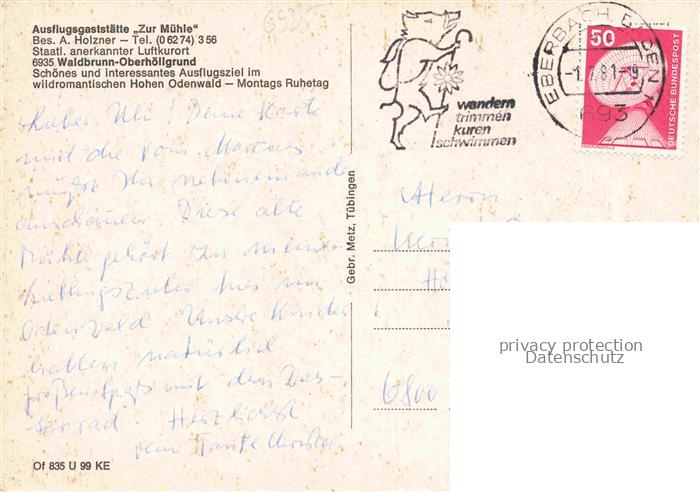 6935
Ausflugsgaststätte „Zur Mühle"
Bes. A. Holzner — Tel. (0 62 74) 3 56
Staatl. anerkannter Luftkurort
6935 Waldbrunn-Oberhöllgrund
Schönes und interessantes Ausflugsziel im
wildromantischen Hohen Odenwald — Montags Ruhetag
Lieber Uli! Deine Karte
und die von Marcus
müßt Ihr nebeneinander
anschauen. Diese alte
Mühle gehört zu meinen
Lieblingszielen hier im
Odenwald. Unsere Kinder
hatten natürlich
großen Spaß mit dem Was-
serrad. Herzlichst
Deine Tante Christa
Of 835 U 99 KE
Gebr. Metz, Tübingen
wandern
trimmen
kuren
schwimmen
EBERBACH, BADEN 1
81-9
693
50
DEUTSCHE BUNDESPOST
Herrn
6800
privacy protection
Datenschutz